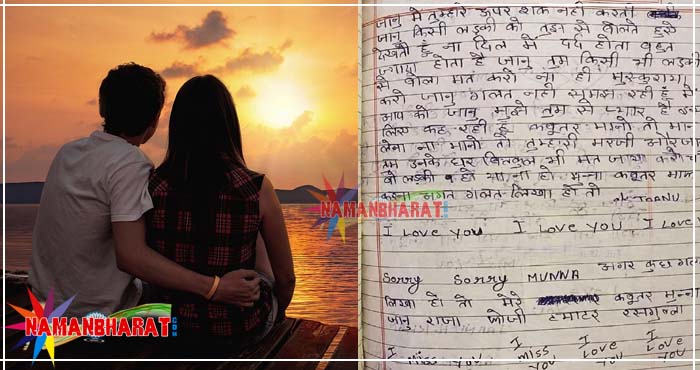 जानु मे तुम्हारे ऊपर शक नही करती
जानु किसी लडकी को तुझ से बोलते हुसे
देखती हूं ना दिल मे दर्द होता बहुत
ज्यादा होता है जानु तुम किसी भी लडकी
से बोला मत करो ना ही मुस्कुराया
करो जानु गलत नही समझ रही हूं मे
आप को जानु मुझे तुम से प्यार है इस
लिस कह रही हूं कबुतर मानो तो मान
लेना ना मानो तो तुम्हारी मरजी और जान
तुम उनके घर बिलकुल भी मत जाया करो
वो लडकी हो या ना हो मुन्ना कबुतर मान
कहना अगत गलत लिखा हो तो
JAANU
I Love you I Love YOU I LOVE
NAMANBHARAT.COM
Sorry Sorry MUNNA अगर कुछ गलत
लिखा हो तो मेरे कबुतर मुन्ना
जानु राजा जीजी टमाटर रसगुल्ला
NAMANBHARAT.COM
I I I I
Miss You miss Love Love
You You You